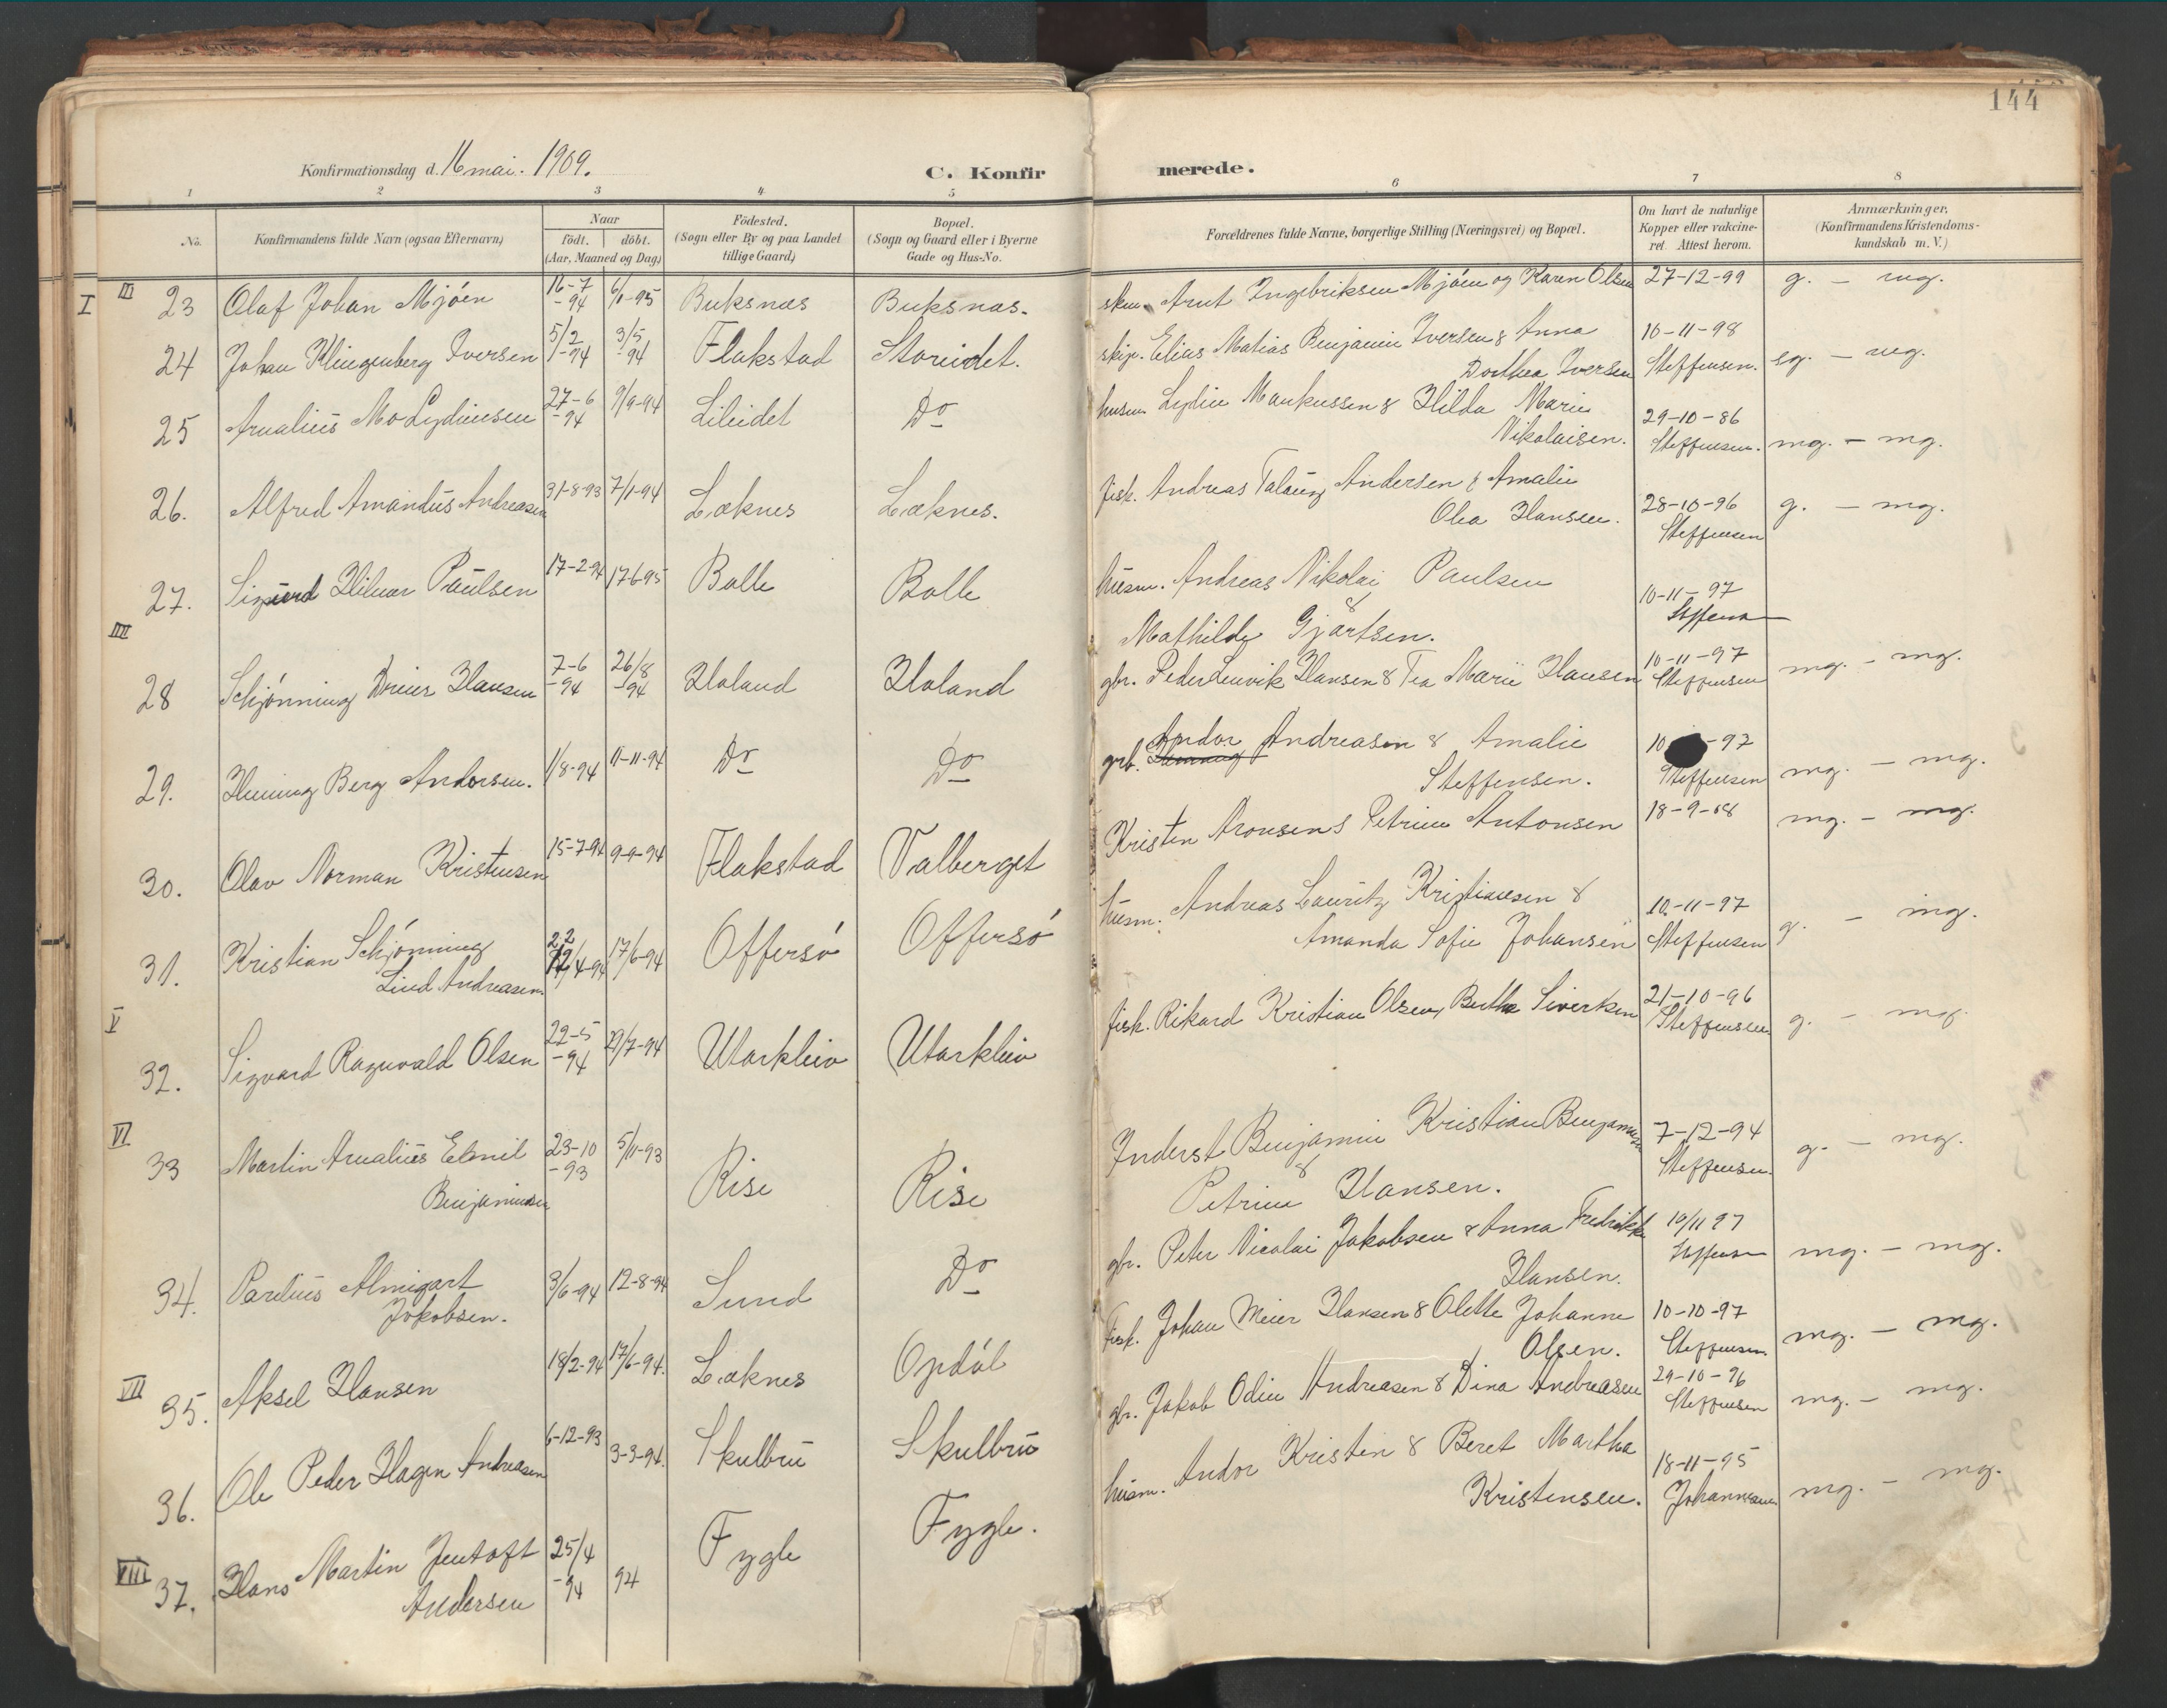 144
Konfirmationsdag d. 16 mai. 1909.
C. Konfirmerede.
1 2 3 4 5 6 7 8
No.
Konfirmandens fulde Navn (ogsaa Efternavn)
Naar
födt. döbt.
(Aar, Maaned og Dag)
Födested.
(Sogn eller By og paa Landet
tillige Gaard)
Bopæl.
(Sogn og Gaard eller i Byerne
Gade og Hus-No.
Forældrenes fulde Navne, borgerlige Stilling (Næringsvei) og Bopæl.
Om havt de naturlige
Kopper eller vakcine-
ret. Attest herom.
Anmærkninger.
(Konfirmandens Kristendoms-
kundskab m. V.)
I III 23 Olaf Johan Mjöen 16-7-94 6/1-95 Buksnes Buksnæs. Arnt Ingebriksen Mjöen og Karen Olsen 27-12-99 g. - mg.
24 Johan Klingenberg Iversen 5/2 1-94 3/5-94 Flakstad Storeidet. skip. Elias Matias Benjamin Iversen & Anna
Dorthea Iversen 10-11-98 Steffensen. sg. - mg.
25 Arnalius Mo Lydiussen 27-6-94 9/9-94 Lileidet Do husm. Lydin Markussen & Hilda Marie
Nikolaisen. 29-10-86 Steffensen. mg. - mg.
26. Alfred Amandus Andreasen 31-8-93 7/1-94 Læknes Læknes. fisk. Andreas Andersen & Amalie
Olea Hansen. 28-10-96 Steffensen g. - mg.
27. Sigurd Hilmar Paulsen 17-2-94 17-6-95 Bolle Bolle husm. Andreas Nikolai Paulsen
&
Mathilde Gjærtsen. 10-11-97 Steffensen
IIII
28 Schjönning Dreier Hansen 7-6-94 26/8-94 Haland Haland gbr. Peder Lenvik Hansen & Tea Marie Hansen 10-11-97 Steffensen mg. - mg.
29. Henning Berg Andorsen. 1/8-94 11-11-94 Do Do grb. Andor Andreasen & Amalie
Steffensen. 10 -97 Steffensen mg. - mg.
30. Olav Norman Kristensen 15-7-94 9-9-94 Flakstad Valberget Kristen Aronsen & Petrine Antonsen 18-9-68 mg. - mg.
31. Kristian Schjönning
Lind Andreasen. 22/4-94 17/6-94 Offersö Offersö husm. Andreas Lauritz Kristiansen &
Amanda Sofie Johansen 10-11-97 Steffensen g. - mg.
V
32. Sigvard Ragnvald Olsen 22-5-94 29/7-94 Utakleiv Utakleiv fisk. Rikard Kristian Olsen, Berthe Siverksen 21-10-96 Steffensen g. - mg.
VI
33 Martin Arnalius Edmil
Benjaminsen 23-10-93 5/11-93 Rise Rise Inderst Benjamin Kristian Benjaminsen
&
Petrine Hansen. 7-12-94 Steffensen. g. - mg.
34. Parelius Almigart
Jakobsen. 3/6-94 12-8-94 Sund Do gbr. Peter Nicolai Jakobsen & Anna Fredrikke
Hansen. 10/11 97 Steffensen mg. - mg.
VII 35. Aksel Hansen 18/2-94 17/6-94. Læknes Opdöl fisk. Johan Meier Hansen & Olette Johanne
Olsen. 10-10-97 Steffensen. mg. - mg.
36. Ole Peder Hagen Andreasen 6-12-93 3-3-94. Skulbru Skulbru gbr. Jakob Odin Andreasen & Dina Andreasen 29-10-96 Steffensen mg. - mg.
VIII 37. Hans Martin Jentoft
Andersen 25/4-94 94 Fygle Fygle. husm. Andor Kristen & Beret Martha
Kristensen. 18-11-95 Johannesen mg. - mg.